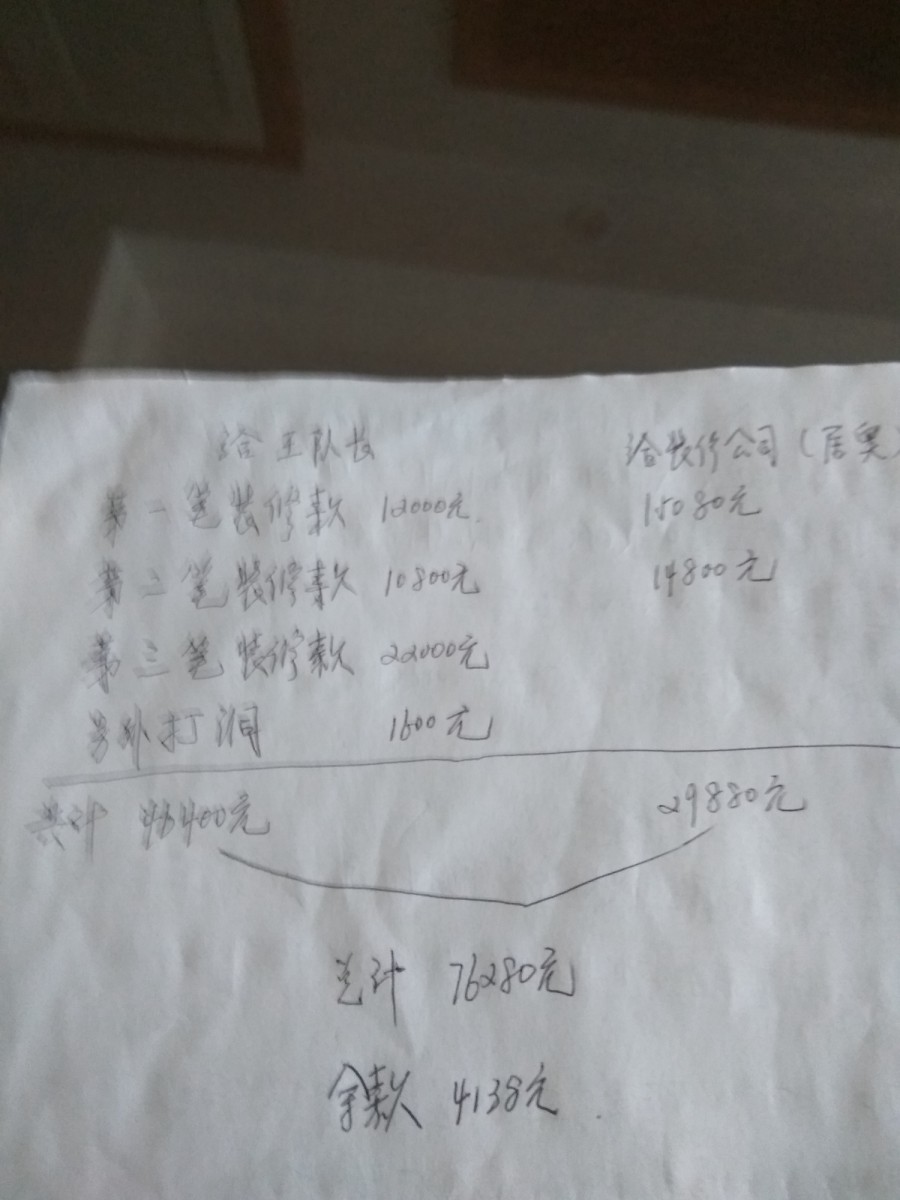 给王队长 给装修公司(居奥)
第一笔装修款 12000元 15080元
第二笔装修款 10800元 14800元
第三笔装修款 22000元
另外打洞 1600元
共计 46400元 29880元
总计 76280元
余款 4138元